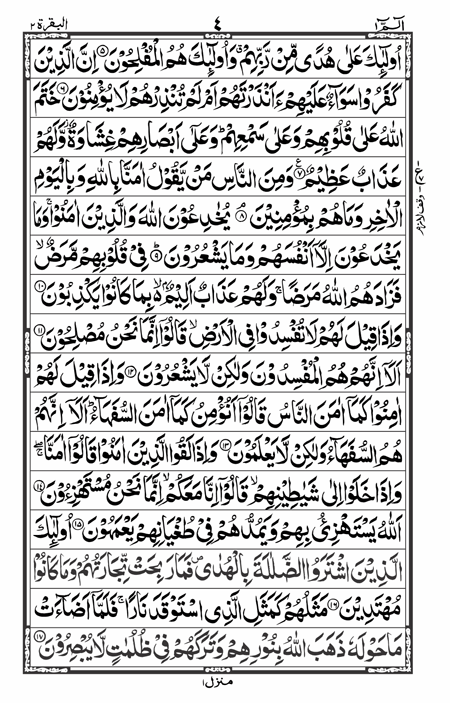 الٓمّٓ ١ ٤ البقرة ٢
اُولٰٓئِكَ عَلٰى هُدًى مِّنْ رَّبِّهِمْ وَاُولٰٓئِكَ هُمُ الْمُفْلِحُوْنَ ۝٥ اِنَّ الَّذِيْنَ
كَفَرُوْا سَوَآءٌ عَلَيْهِمْ ءَاَنْذَرْتَهُمْ اَمْ لَمْ تُنْذِرْهُمْ لَا يُؤْمِنُوْنَ ۝٦ خَتَمَ
اللّٰهُ عَلٰى قُلُوْبِهِمْ وَعَلٰى سَمْعِهِمْ ؕ وَعَلٰٓى اَبْصَارِهِمْ غِشَاوَةٌ ؗ وَّلَهُمْ
عَذَابٌ عَظِيْمٌ ۝٧ وَمِنَ النَّاسِ مَنْ يَّقُوْلُ اٰمَنَّا بِاللّٰهِ وَبِالْيَوْمِ
الْاٰخِرِ وَمَا هُمْ بِمُؤْمِنِيْنَ ۝٨ يُخٰدِعُوْنَ اللّٰهَ وَالَّذِيْنَ اٰمَنُوْا ۚ وَمَا
يَخْدَعُوْنَ اِلَّآ اَنْفُسَهُمْ وَمَا يَشْعُرُوْنَ ۝٩ فِيْ قُلُوْبِهِمْ مَّرَضٌ ۙ
فَزَادَهُمُ اللّٰهُ مَرَضًا ۚ وَلَهُمْ عَذَابٌ اَلِيْمٌۢ ۙ بِمَا كَانُوْا يَكْذِبُوْنَ ۝١٠
وَاِذَا قِيْلَ لَهُمْ لَا تُفْسِدُوْا فِى الْاَرْضِ ۙ قَالُوْٓا اِنَّمَا نَحْنُ مُصْلِحُوْنَ ۝١١
اَلَآ اِنَّهُمْ هُمُ الْمُفْسِدُوْنَ وَلٰكِنْ لَّا يَشْعُرُوْنَ ۝١٢ وَاِذَا قِيْلَ لَهُمْ
اٰمِنُوْا كَمَآ اٰمَنَ النَّاسُ قَالُوْٓا اَنُؤْمِنُ كَمَآ اٰمَنَ السُّفَهَآءُ ؕ اَلَآ اِنَّهُمْ
هُمُ السُّفَهَآءُ وَلٰكِنْ لَّا يَعْلَمُوْنَ ۝١٣ وَاِذَا لَقُوا الَّذِيْنَ اٰمَنُوْا قَالُوْٓا اٰمَنَّا ۚۖ
وَاِذَا خَلَوْا اِلٰى شَيٰطِيْنِهِمْ ۙ قَالُوْٓا اِنَّا مَعَكُمْ ۙ اِنَّمَا نَحْنُ مُسْتَهْزِءُوْنَ ۝١٤
اَللّٰهُ يَسْتَهْزِئُ بِهِمْ وَيَمُدُّهُمْ فِيْ طُغْيَانِهِمْ يَعْمَهُوْنَ ۝١٥ اُولٰٓئِكَ
الَّذِيْنَ اشْتَرَوُا الضَّلٰلَةَ بِالْهُدٰى ۪ فَمَا رَبِحَتْ تِّجَارَتُهُمْ وَمَا كَانُوْا
مُهْتَدِيْنَ ۝١٦ مَثَلُهُمْ كَمَثَلِ الَّذِى اسْتَوْقَدَ نَارًا ۚ فَلَمَّآ اَضَآءَتْ
مَا حَوْلَهٗ ذَهَبَ اللّٰهُ بِنُوْرِهِمْ وَتَرَكَهُمْ فِيْ ظُلُمٰتٍ لَّا يُبْصِرُوْنَ ۝١٧
منزل ١